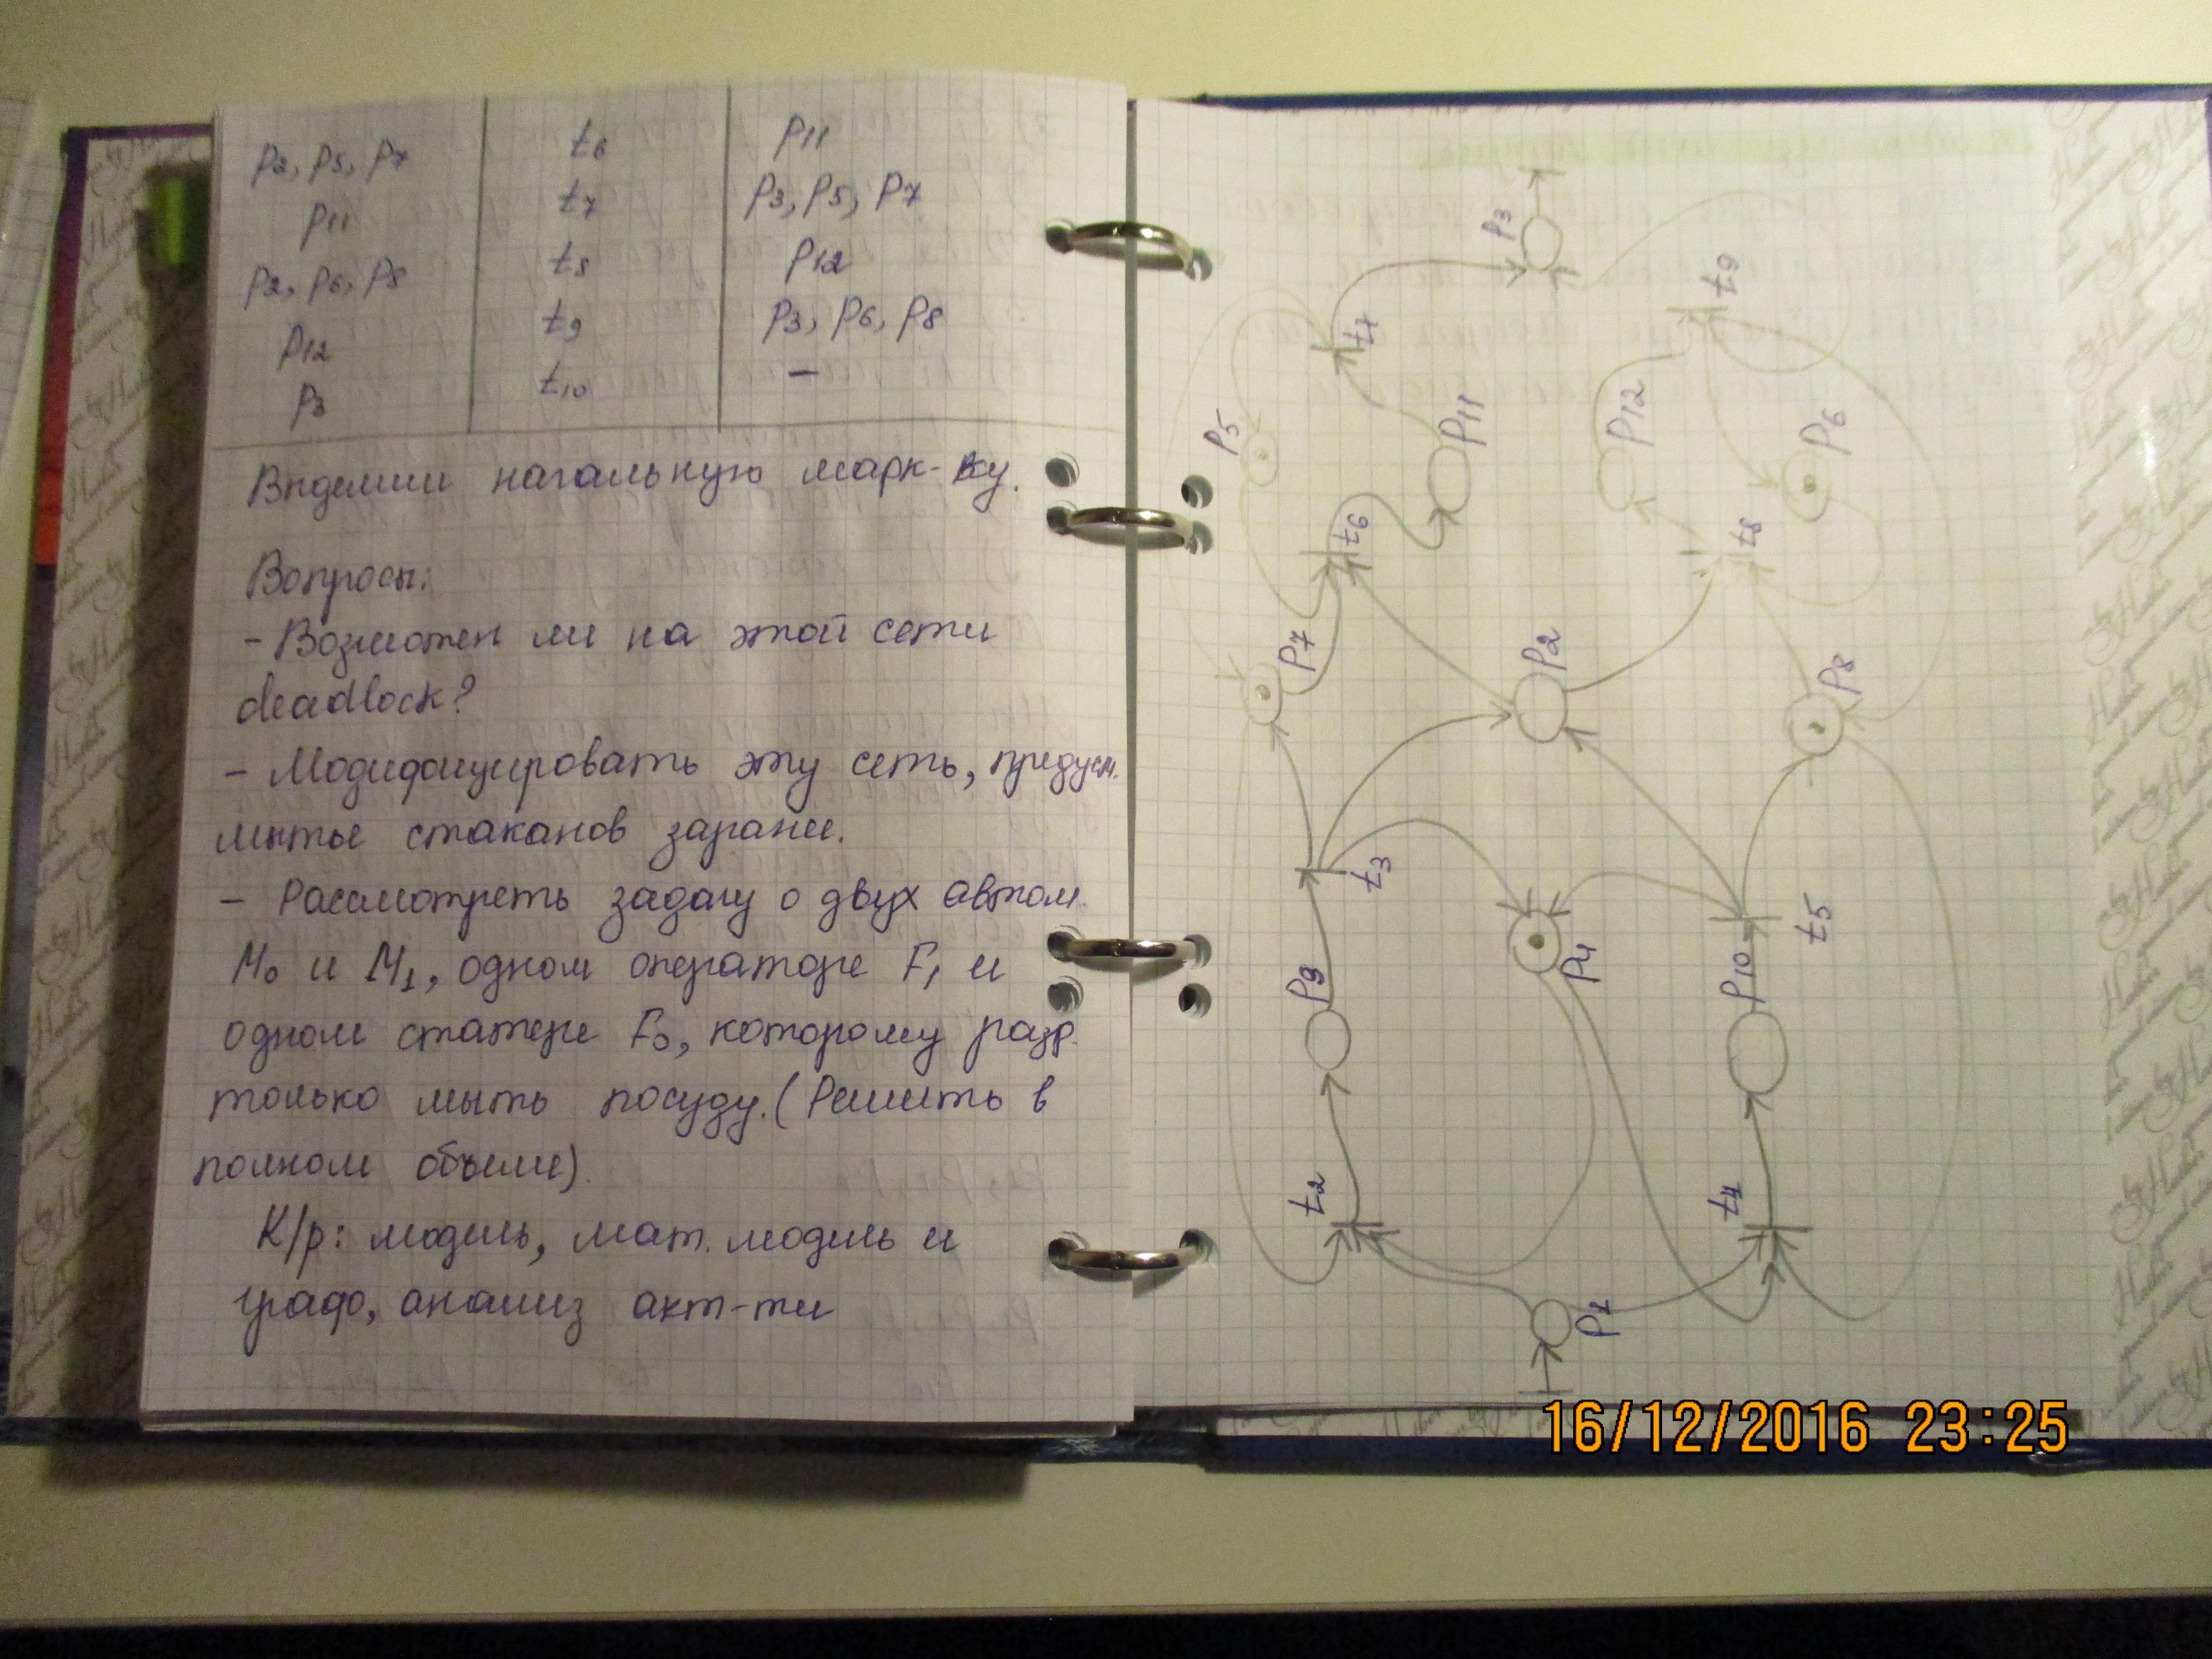 p2, p5, p7 t6 p11
p11 t7 p3, p5, p7
p2, p6, p8 t8 p12
p12 t9 p3, p6, p8
p3 t10 –
начальную марк-ку.
Вопросы:
- Возможен ли на этой сети
deadlock?
- Модифицировать эту сеть, предусм.
мытье стаканов заранее.
- Рассмотреть задачу о двух автом.
M0 и M1, одном операторе F1 и
одном стажере F0, которому разр.
только мыть посуду. (Решить в
полном объеме).
К/р: модель, мат. модель и
граф, анализ акт-ти
p3
t9
t7
p5
p11
p12
p6
t6
t8
p7
p2
p8
t3
t5
p9
p4
p10
t2
t4
p1
16/12/2016 23:25